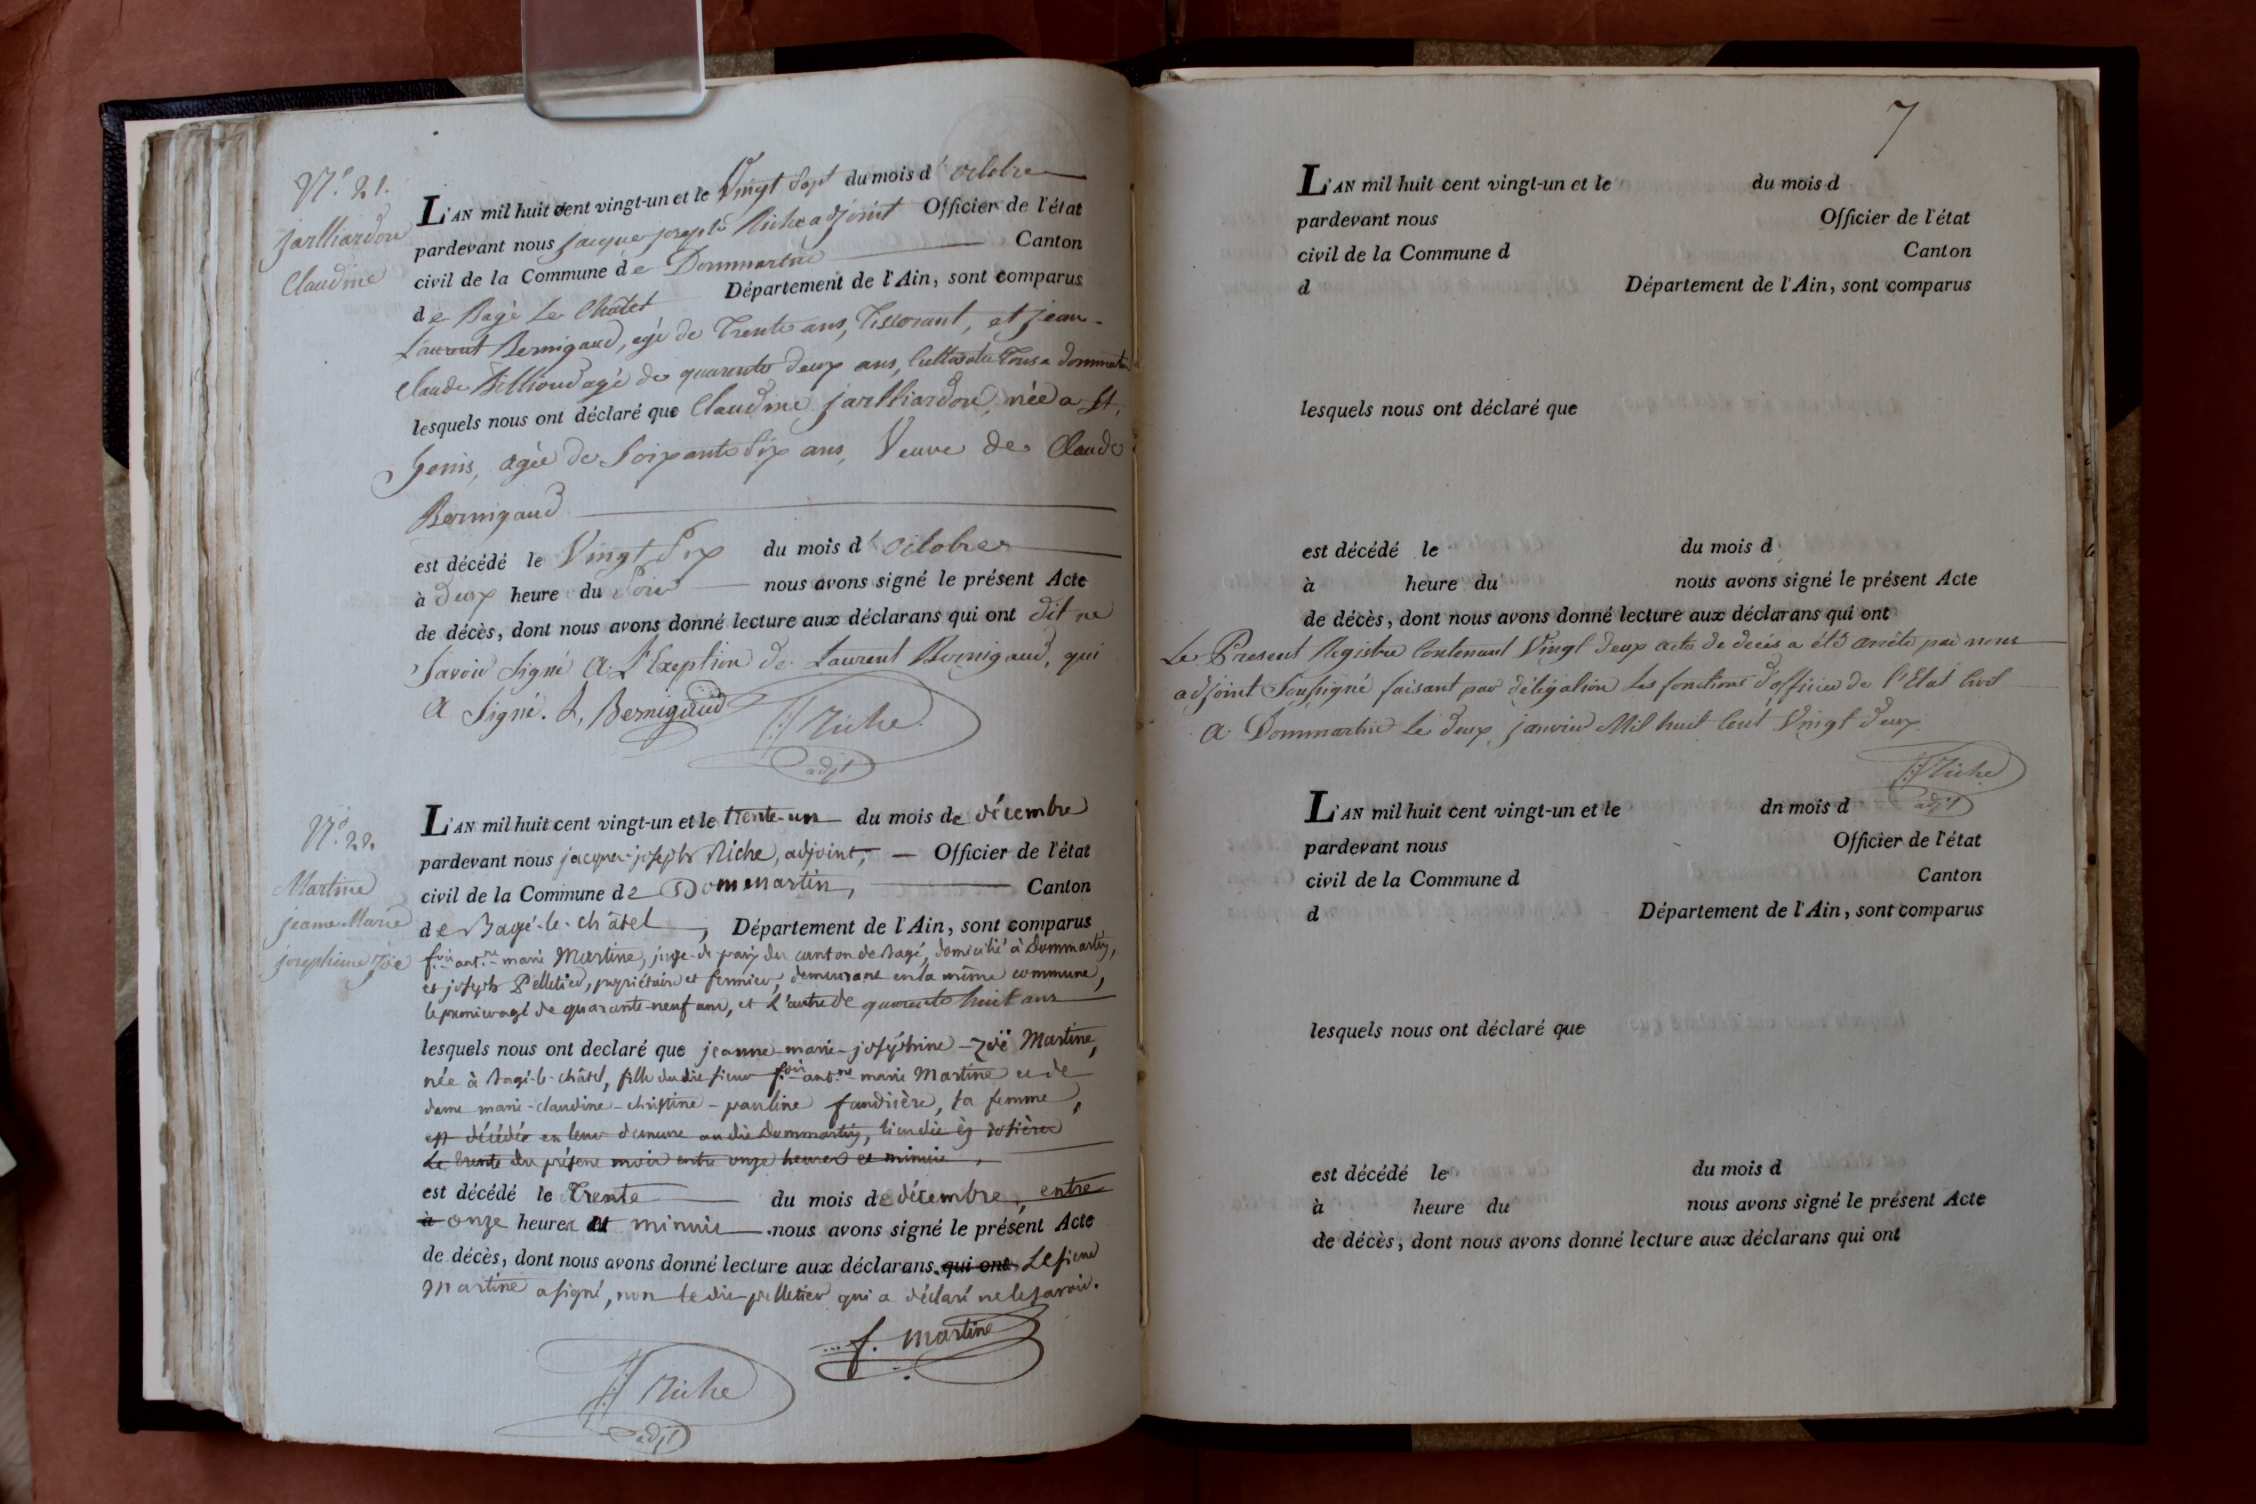 N.º 21.
jarlliardon
Claudine
L'AN mil huit cent vingt-un et le Vingt Sept du mois d'octobre
pardevant nous jacque joseph Riche adjoint Officier de l'état
civil de la Commune de Dommartin Canton
de Bagé Le Châtel Département de l'Ain, sont comparus
Laurent Bernigaud, agé de Trente ans, Tisserant, et jean-
Claude Billioud agé de quarante deux ans, Cultivateur Tous a dommartin
lesquels nous ont déclaré que Claudine jarlliardon, née a St.
Genis, agée de Soixante Six ans, Veuve de Claude
Bernigaud
est décédé le Vingt Six du mois d'octobre
à deux heure du Soir nous avons signé le présent Acte
de décès, dont nous avons donné lecture aux déclarans qui ont dit ne
Savoir Signé A L'Exeption de Laurent Bernigaud, qui
A Signé. L, Bernigaud
Riche
adjt
N.º 22.
Martine
jeanne Marie
josephine Zöe
L'AN mil huit cent vingt-un et le trente-un du mois de décembre
pardevant nous jacques-joseph Riche, adjoint, Officier de l'état
civil de la Commune de Dommartin, Canton
de Bagé-le-châtel, Département de l'Ain, sont comparus
f.ois ant.ne marie Martine, juge-de paix du canton de Bagé, domicilié à Dommartin,
et joseph Pelletier, propriétaire et fermier, demeurant en la même commune,
le premier agé de quarante-neuf ans, et L'autre de quarante huit ans
lesquels nous ont declaré que jeanne-marie-joséphine-zoë Martine,
née à Bagé-le-châtel, fille dudit sieur f.ois ant.ne marie Martine et de
dame marie-claudine-christine-pauline fandisère, sa femme,
est décédée en leur demeure audit Dommartin, lieu dit ès rosières
Le trente du présent mois entre onze heures et minuit,
est décédé le Trente du mois de décembre, entre
à onze heures et minuit nous avons signé le présent Acte
de décès, dont nous avons donné lecture aux déclarans. qui ont Le sieur
Martine a signé, non ledit pelletier qui a déclaré ne le savoir.
f. Martine
Riche
adjt
7
L'AN mil huit cent vingt-un et le du mois d
pardevant nous Officier de l'état
civil de la Commune d Canton
d Département de l'Ain, sont comparus
lesquels nous ont déclaré que
est décédé le du mois d
à heure du nous avons signé le présent Acte
de décès, dont nous avons donné lecture aux déclarans qui ont
Le Present Registre Contenant Vingt deux acte de decès a été arrêté par nous
adjoint Soussigné faisant par délégation Les fonctions d'officier de l'Etat Civil
A Dommartin Le deux janvier Mil huit Cent Vingt deux
Riche
adjt
L'AN mil huit cent vingt-un et le dn mois d
pardevant nous Officier de l'état
civil de la Commune d Canton
d Département de l'Ain, sont comparus
lesquels nous ont déclaré que
est décédé le du mois d
à heure du nous avons signé le présent Acte
de décès, dont nous avons donné lecture aux déclarans qui ont